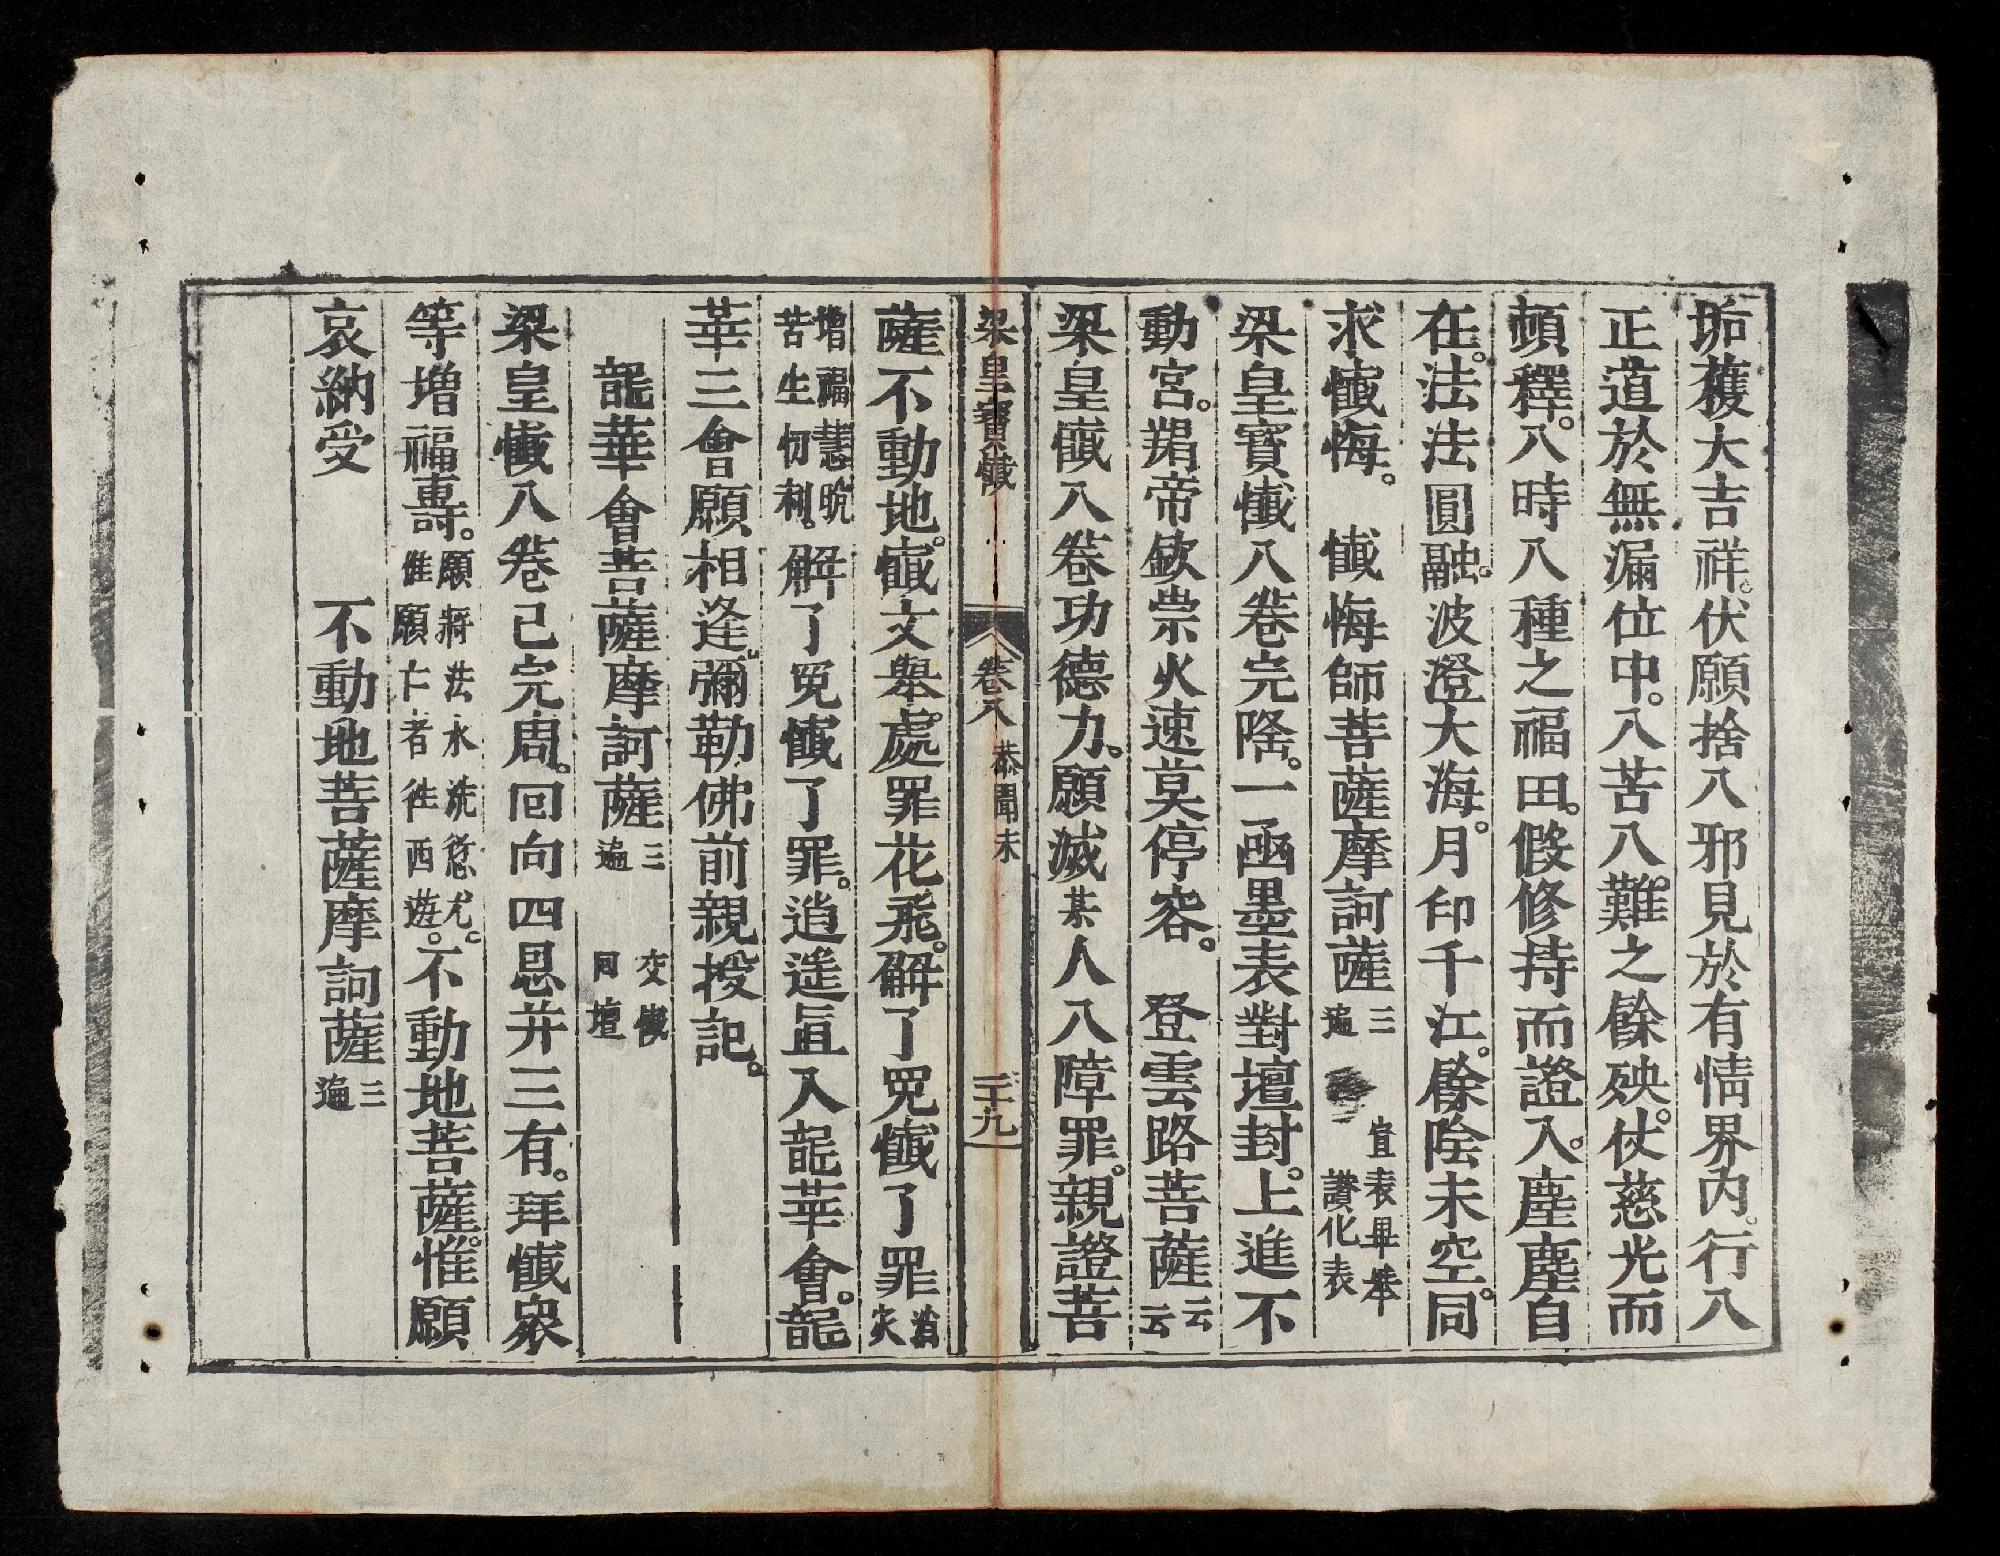 垢獲大吉祥。伏願捨八邪見於有情界內。行八
正道於無漏位中。八苦八難之餘殃。仗慈光而
頓釋。八時八種之福田。假修持而證入。塵塵自
在。法法圓融。波澄大海。月印千江。餘陰未空。同
求懺悔。 懺悔師菩薩摩訶薩三遍 宣表畢奉讚化表
梁皇寶懺八卷完隆。一函墨表對壇封。上進不
動宮。羯帝欽崇火速莫停容。 登雲路菩薩云云
梁皇懺八卷功德力。願滅某人八障罪。親證菩
梁皇寶懺 卷八 恭聞末 二十九
薩不動地。懺文舉處罪花飛。解了冤懺了罪消災
增福慧脫苦生忉利。解了冤懺了罪。逍遙直入龍華會。龍
華三會願相逢。彌勒佛前親授記。
龍華會菩薩摩訶薩三遍 交懺同壇
梁皇懺八卷已完周。回向四恩并三有。拜懺眾
等增福壽。願將法水洗愆尤。惟願亡者往西遊。不動地菩薩。惟願
哀納受 不動地菩薩摩訶薩三遍